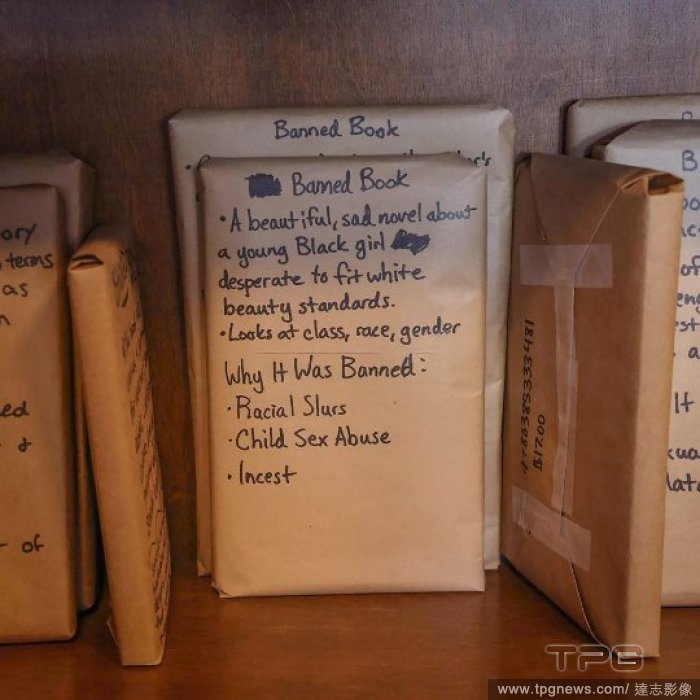 ory
terms
as
ed
&
of
Banned Book
Banned Book
• A beautiful, sad novel about
a young Black girl
desperate to fit white
beauty standards.
• Looks at class, race, gender
Why It Was Banned:
• Racial Slurs
• Child Sex Abuse
• Incest
9780385333481
$17.00
B
of
eng
est
a
It
TPG
www.tpgnews.com/ 達志影像